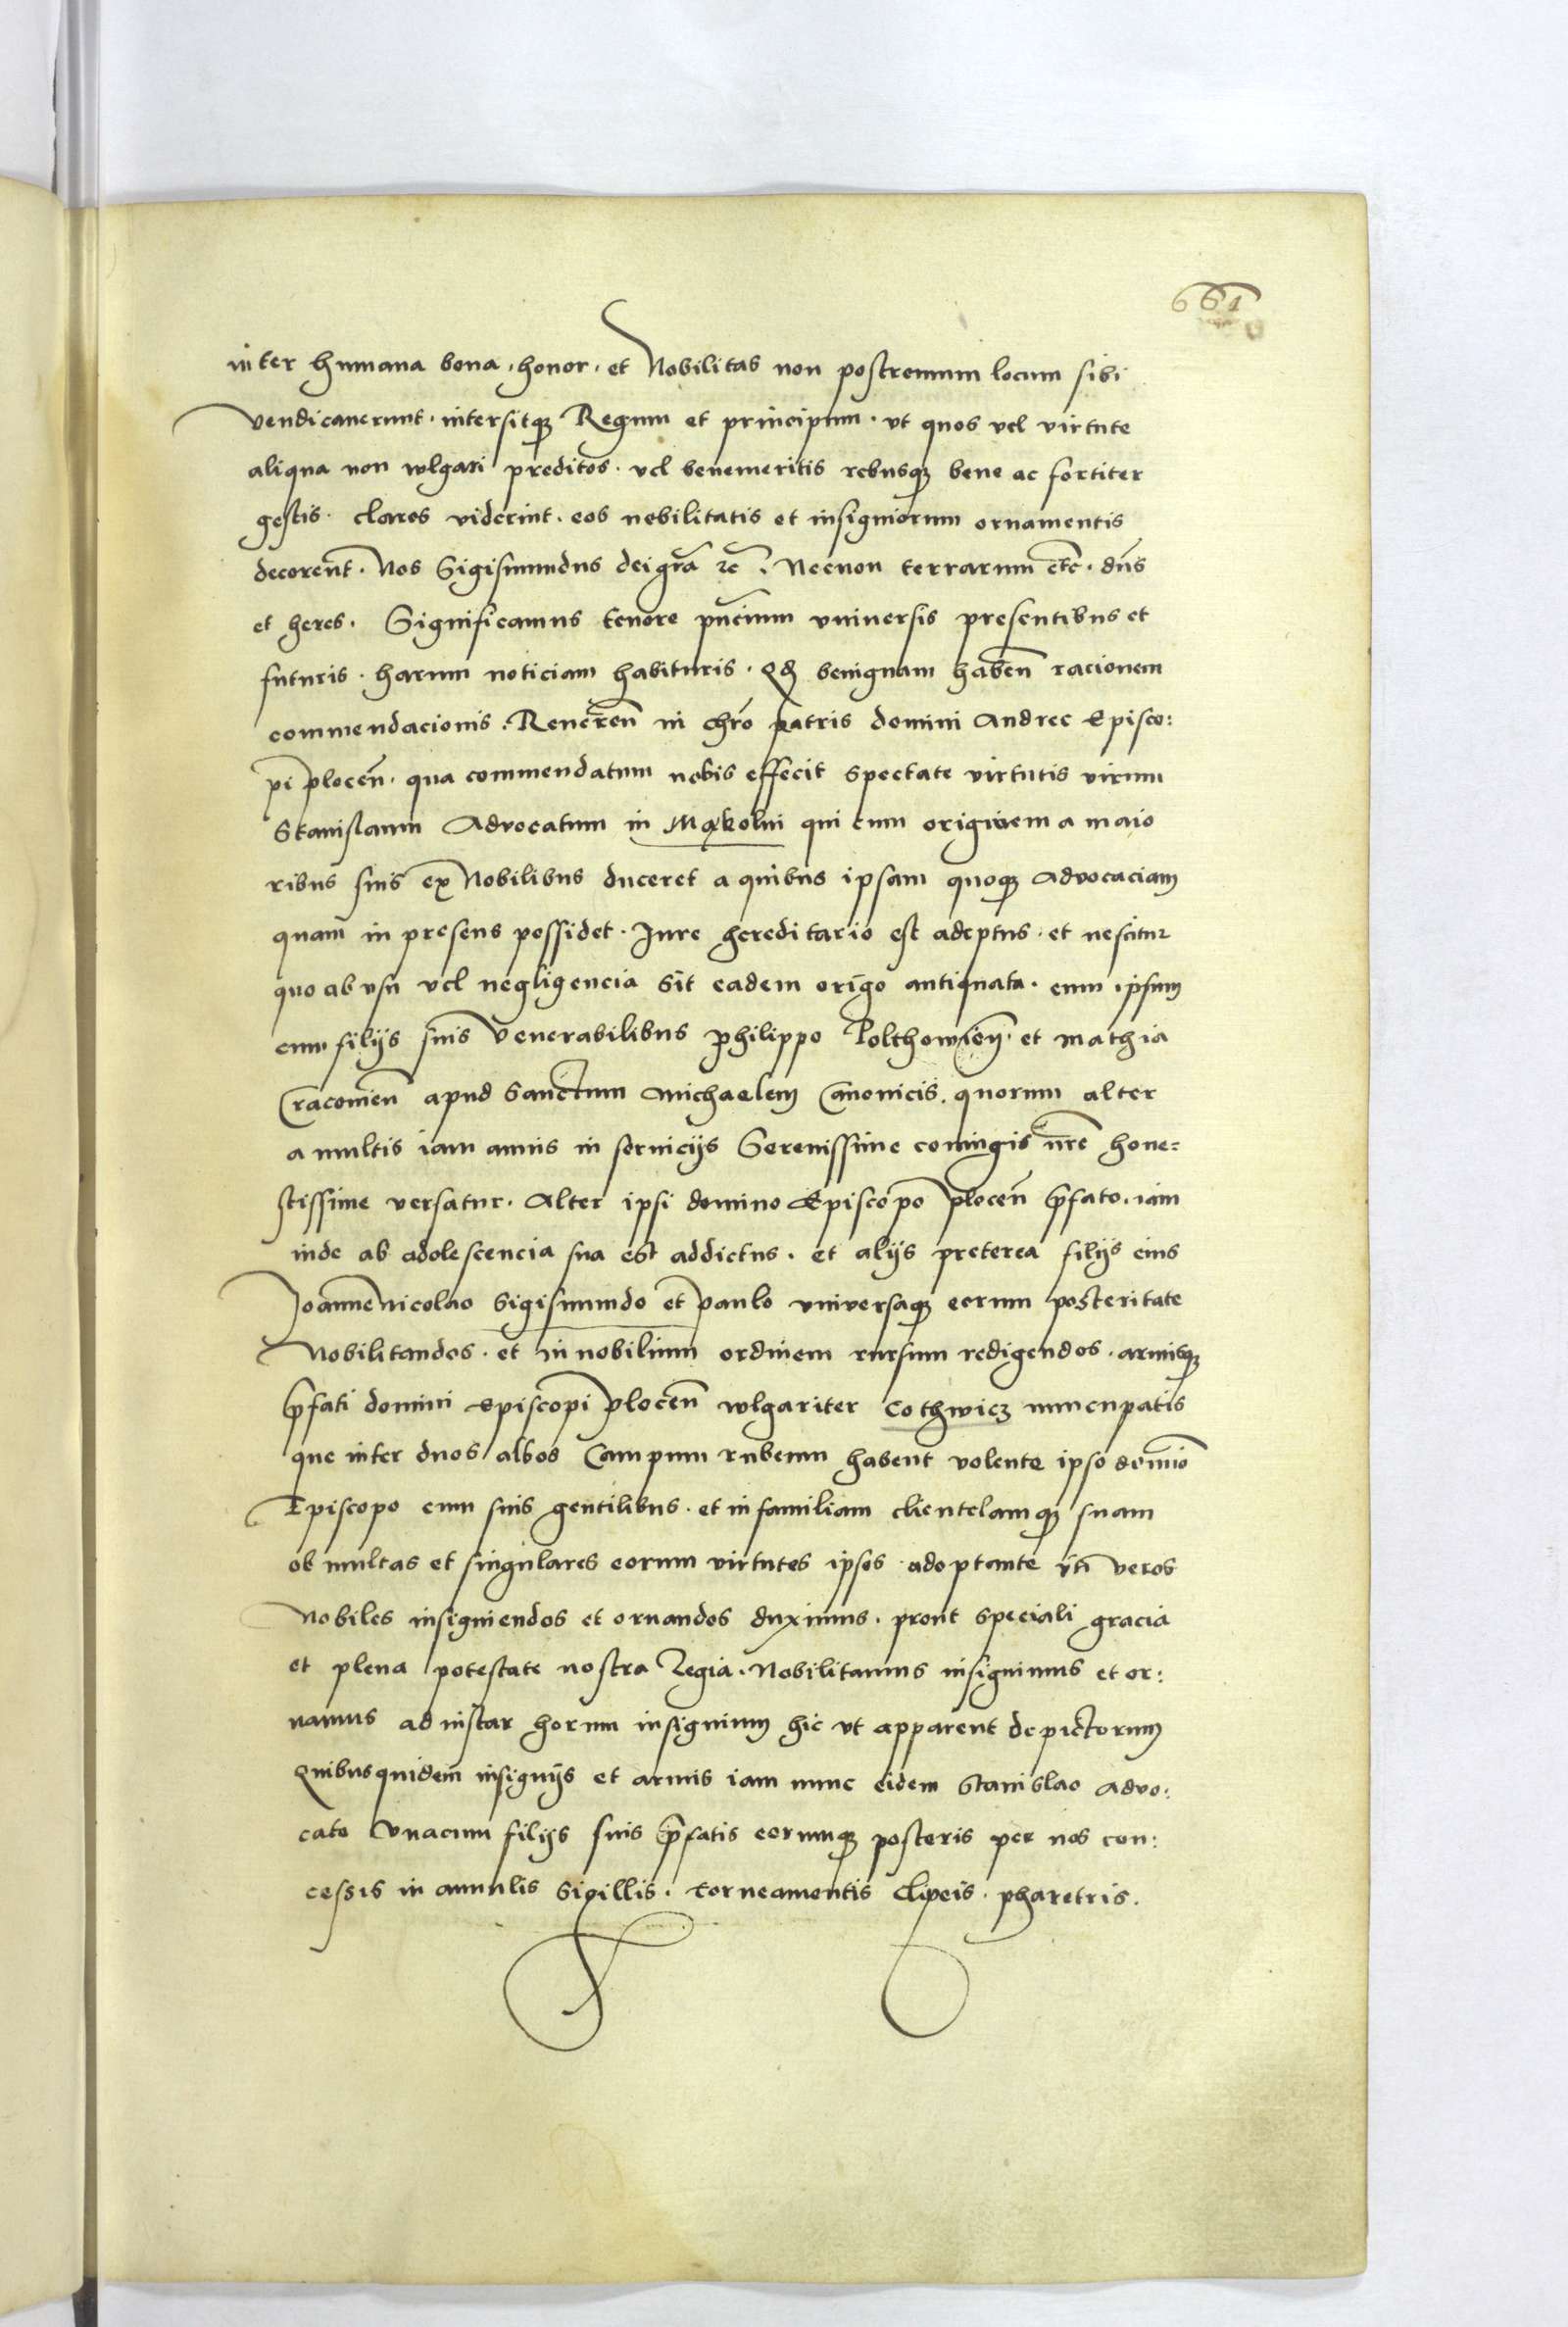 661
inter humana bona, honor, et Nobilitas non postremum locum sibi
vendicaverunt. intersitq Regum et principum. ut quos vel virtute
aliqua non wlgari preditos. vel benemeritis rebusq bene ac fortiter
gestis. claros viderint. eos nobilitatis et insigniorum ornamentis
decorent. Nos Sigismundus dei gra rc. Necnon terrarum etc. dns
et heres. Significamus tenore pncium universis presentibus et
futuris. harum noticiam habituris. Qd benignam haben racionem
commendacionis. Reveren in chro patris domini Andree Episco:
pi plocen. qua commendatum nobis effecit spectate virtutis virum
Stanislaum Advocatum in Mąkolni qui cum originem a maio
ribus suis ex Nobilibus duceret a quibus ipsam quoq Advocaciam
quam in presens possidet. Jure hereditario est adeptus. et nescitur
quo abusu vel negligencia sit eadem origo antiquata. eum ipsum
cum filijs suis Venerabilibus Philippo Polthowien et Mathia
Cracovien apud Sanctum Michaelem Canonicis. quorum alter
a multis iam annis in servicijs Serenissime coniugis nre hone=
stissime versatur. Alter ipsi domino Episcopo plocen prfato. iam
inde ab adolescencia sua est addictus. et alijs preterea filijs eius
Joanne Nicolao Sigismundo et Paulo universaq eorum posteritate
Nobilitandos. et in nobilium ordinem rursum redigendos. armisq
prfati domini Episcopi plocen wlgariter Cothwicz nuncupatis
que inter duos albos Campum rubeum habent volente ipso domino
Episcopo cum suis gentilibus. et in familiam clientelamq suam
ob multas et singulares eorum virtutes ipsos adoptante uti veros
Nobiles insigniendos et ornandos duximus. prout speciali gracia
et plena potestate nostra Regia. Nobilitamus insignimus et or:
namus ad instar horum insignium hic ut apparent depictorum
Quibusquidem insignijs et armis iam nunc eidem Stanislao Advo:
cato Unacum filijs suis prfatis eorumq posteris per nos con:
cessis in annulis sigillis. torneamentis Clipeis. pharetris.